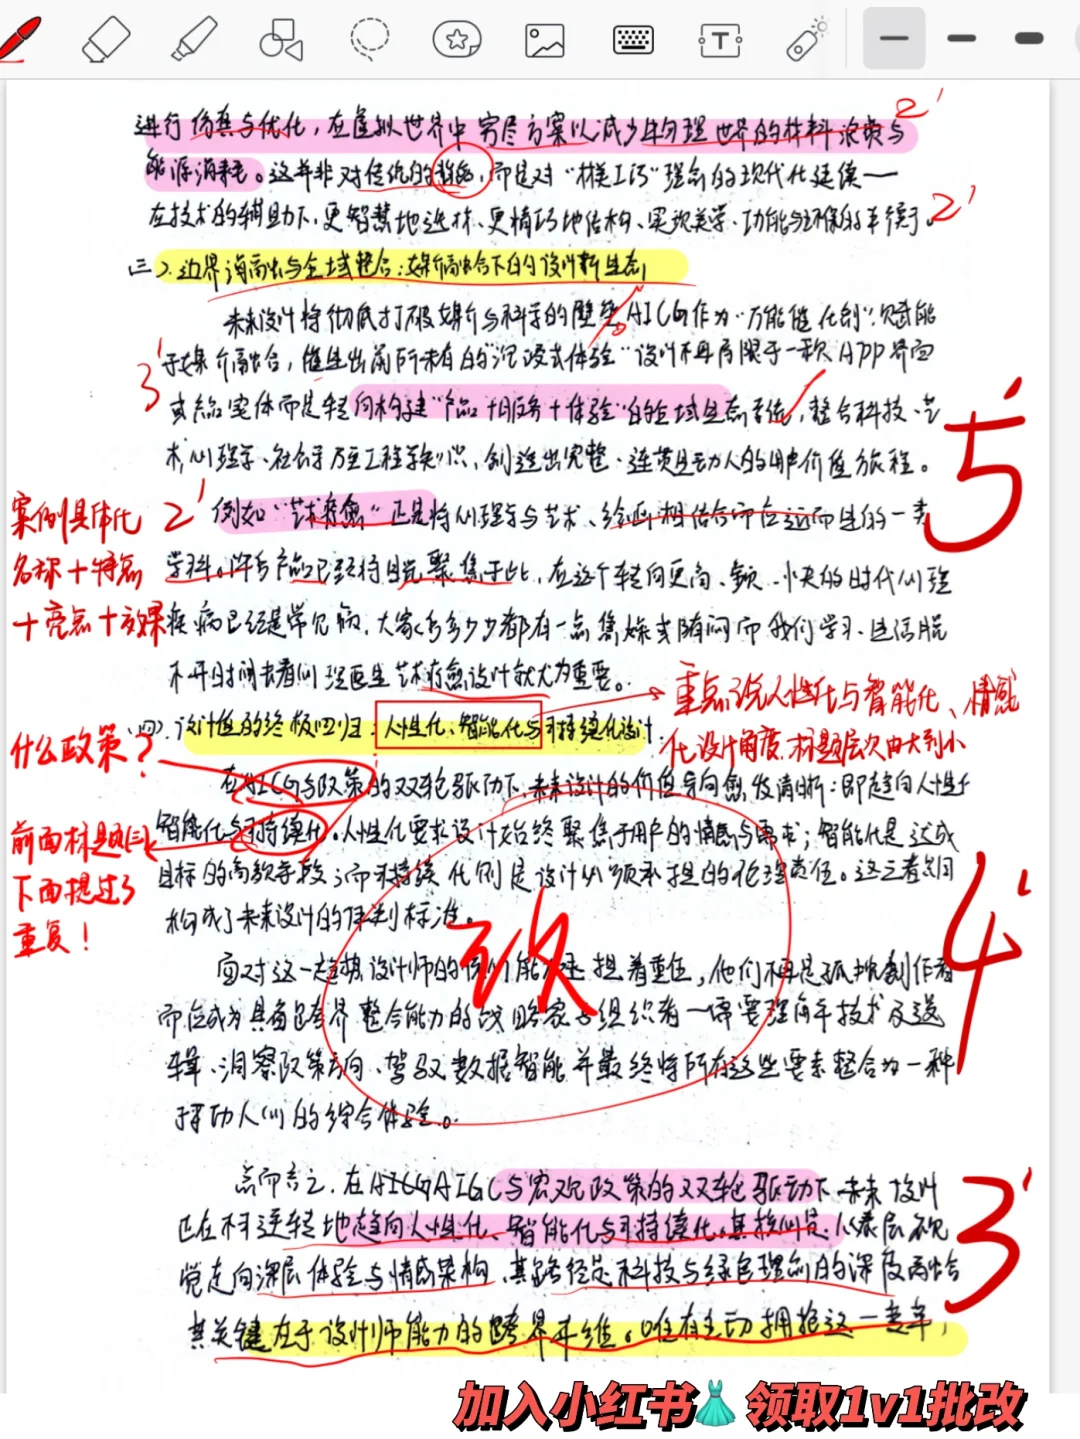 进行仿真与优化，在虚拟世界中穷尽方案以减少物理世界的材料浪费与
2'
能源消耗。这并非对传统的背叛，而是对“材美工巧”理念的现代化延续——
在技术的辅助下，更智慧地选材、更精巧地结构、实现美学、功能与环保的平衡。
2'
(三).边界消融与全域整合：媒介融合下的设计新生态
未来设计将彻底打破媒介与科学的壁垒AIGC作为“万能催化剂”，赋能
于媒介融合，催生出前所未有的“沉浸式体验”设计不再局限于一款APP界面
3'
或产品实体而是转向构建“产品+服务+体验”的全域生态系统，整合科技、艺
术、心理学、社会学乃至工程学知识，创造出完整、连贯且动人的用户价值旅程。
5'
例如“艺术疗愈”正是将心理学与艺术、绘画相结合而应运而生的一类
2'
案例具体化
名称+特点
+亮点+效果
学科。许多产品已经将目光聚焦于此，在这个转向更高、更、小快的时代心理
疾病已经是常见病，大家多多少少都有一点焦躁或随闷而我们学习、生活脱
不开时间去看心理医生艺术疗愈设计就尤为重要。
重点说人性化与智能化、情感
化设计角度.标题层次由大到小
(四).设计值的终极回归：人性化、智能化与可持续化设计.
什么政策？
在AIGC与政策的双轮驱动下，未来设计的价值导向愈发清晰：即趋向人性化
智能化与可持续化。人性化要求设计始终聚焦于用户的情感与需求；智能化是达成
前面标题(三)
下面提过了
重复！
目标的高效手段；而可持续化则是设计必须承担的伦理责任。这三者共同
构成了未来设计的评判标准。
4'
改
面对这一趋势设计师的 能 担着重任，他们不再是孤独创作者
而应成为具备跨界整合能力的战略家与组织者一需要理解年技术及逻
辑、洞察政策方向、驾驭数据智能并最终将所有这些要素整合为一种
打动人心的综合体验。
总而言之，在AIGCAIGC与宏观政策的双轮驱动下，未来设计
正在不可逆转地趋向人性化、智能化与可持续化。其核心是，从表层视
3'
觉走向深层体验与情感架构，其路径是科技与绿色理念的深度融合
其关键在于设计师能力的跨界升维。唯有主动拥抱这一变革，
加入小红书 领取1v1批改